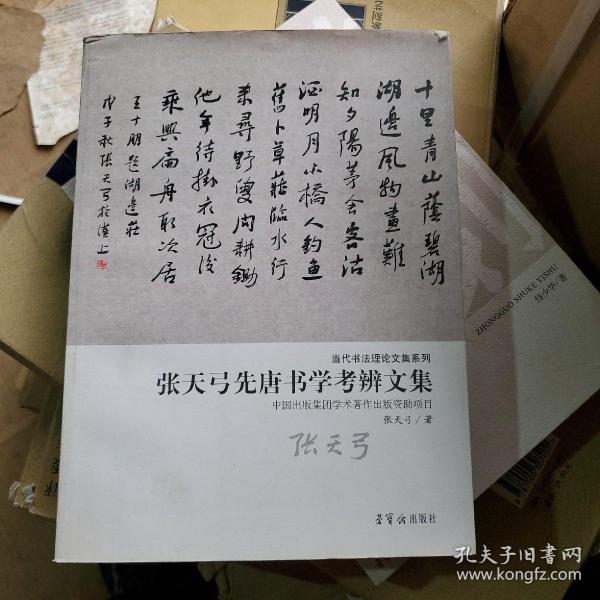 十里青山蔭碧湖
湖邊風物畫難
知夕陽茅舍客沽
酒明月小橋人釣魚
舊卜草莊臨水行
來尋野叟問耕鋤
他年待掛衣冠後
乘興扁舟取次居
王十朋題湖邊莊
戊子秋張天弓於漢上
当代书法理论文集系列
张天弓先唐书学考辨文集
中国出版集团学术著作出版资助项目
张天弓/著
张天弓
荣宝斋出版社
ZHONGGUO SHUKE YISHU
侍少华/著
孔夫子旧书网
www.kongfz.com